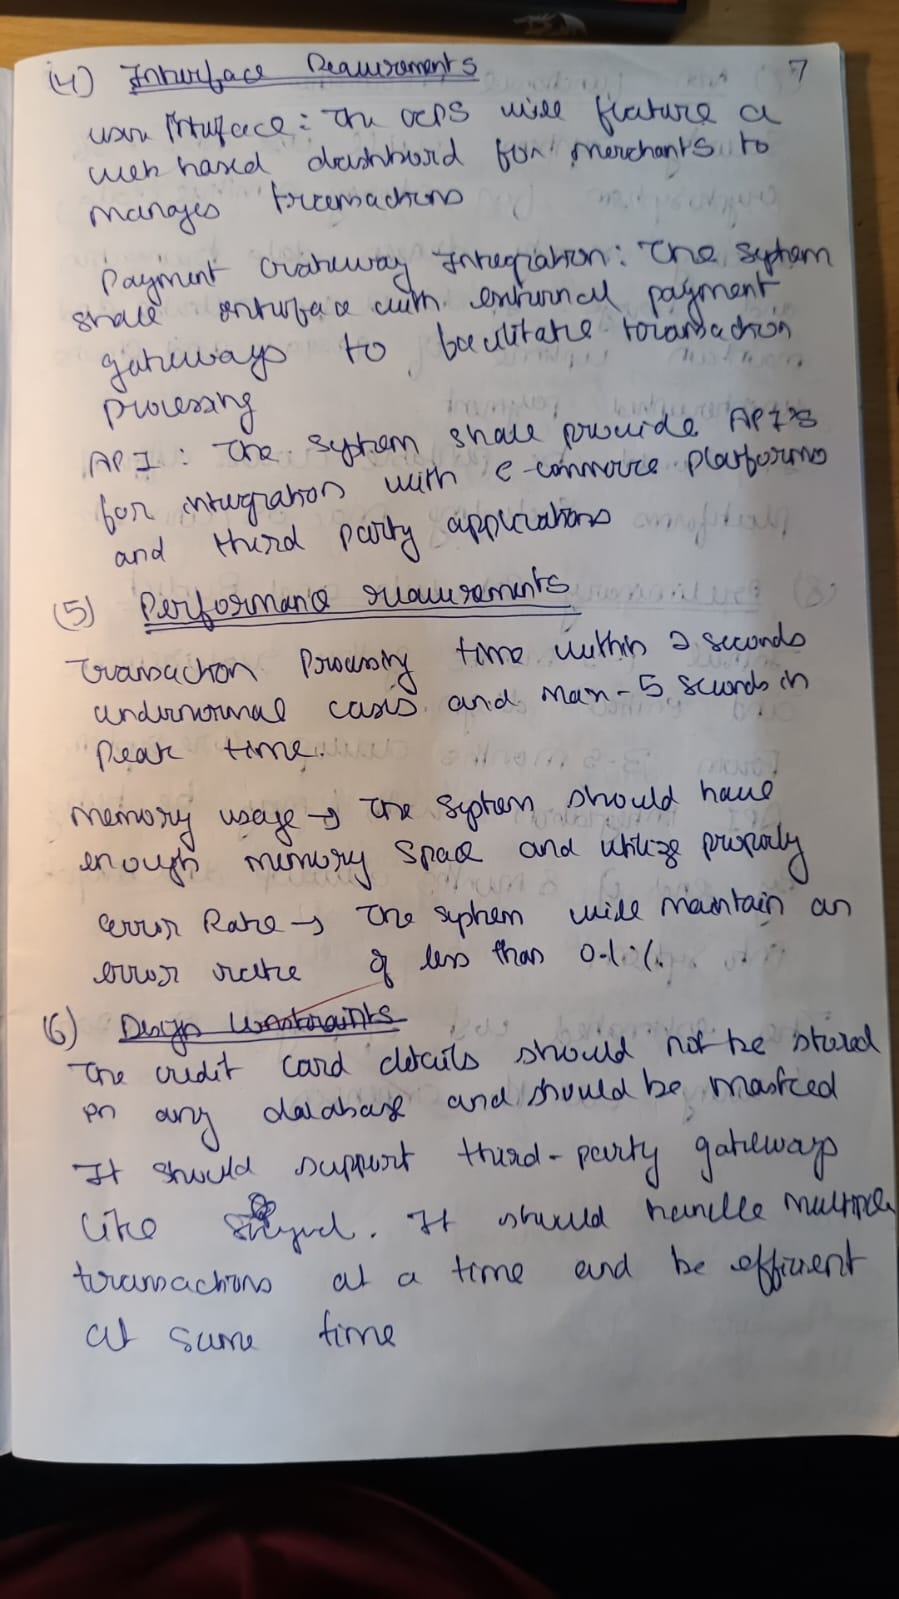 7
(4) Interface Requirements
User Interface: The OCPS will feature a
web based dashbord for merchants to
manages transactions
Payment Gateway Integration: The system
shall interface with external payment
gateways to facilitate transaction
processing
API: The system shall provide API's
for integration with e-commerce platforms
and third party applications
(5) Performance requirements
Transaction Processing time within 2 seconds
under normal cases and max-5 seconds in
Peak time.
Memory usage → The system should have
enough memory space and utilize properly
error Rate → The system will maintain an
error rate of less than 0.1%.
(6) Design Constraints
The credit card details should not be stored
in any database and should be masked
It should support third-party gateways
like. It should handle multiple
transactions at a time and be efficient
at same time